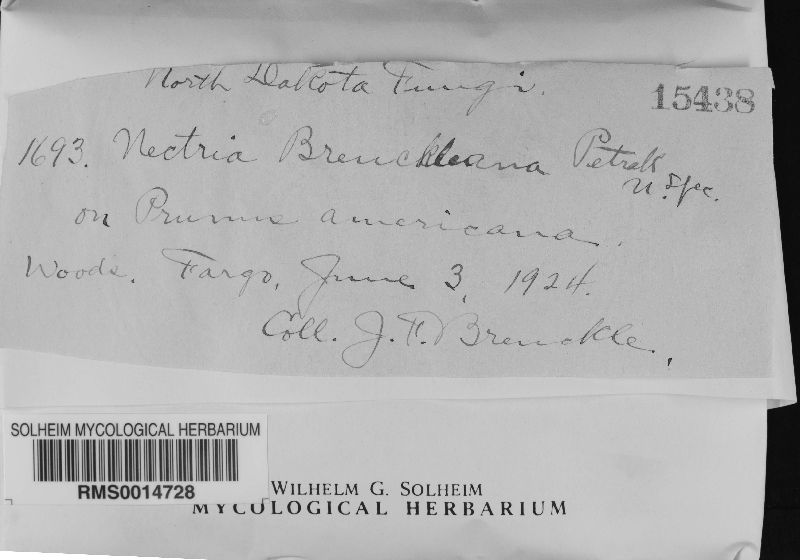 North Dakota Fungi.
15438
1693. Nectria Brenckleana Petrak
n. spec.
on Prunus americana.
Woods. Fargo, June 3, 1924.
Coll. J. F. Brenckle.
SOLHEIM MYCOLOGICAL HERBARIUM
RMS0014728
WILHELM G. SOLHEIM
MYCOLOGICAL HERBARIUM